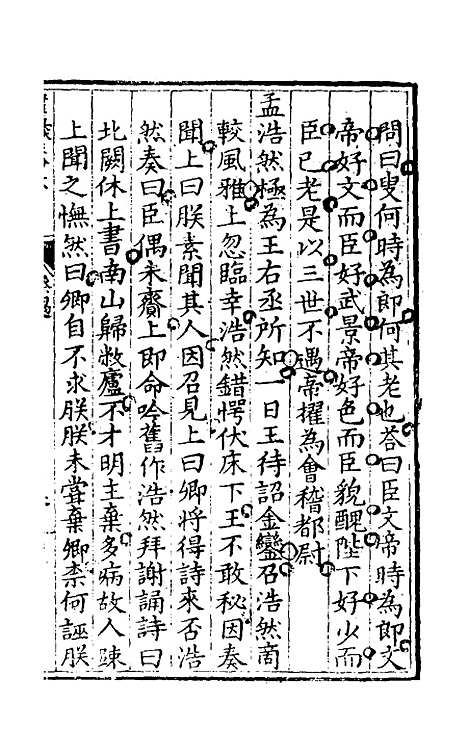 問曰叟何時為郎何其老也荅曰臣文帝時為郎文
帝好文而臣好武景帝好色而臣貌醜陛下好少而
臣已老是以三世不遇帝擢為會稽都尉
孟浩然極為王右丞所知一日王待詔金鑾召浩然商
較風雅上忽臨幸浩然錯愕伏床下王不敢秘因奏
聞上曰朕素聞其人因召見上曰卿將得詩來否浩
然奏曰臣偶未齎上即命吟舊作浩然拜謝誦詩曰
北闕休上書南山歸敝廬不才明主棄多病故人踈
上聞之憮然曰卿自不求朕朕未嘗棄卿柰何誣朕